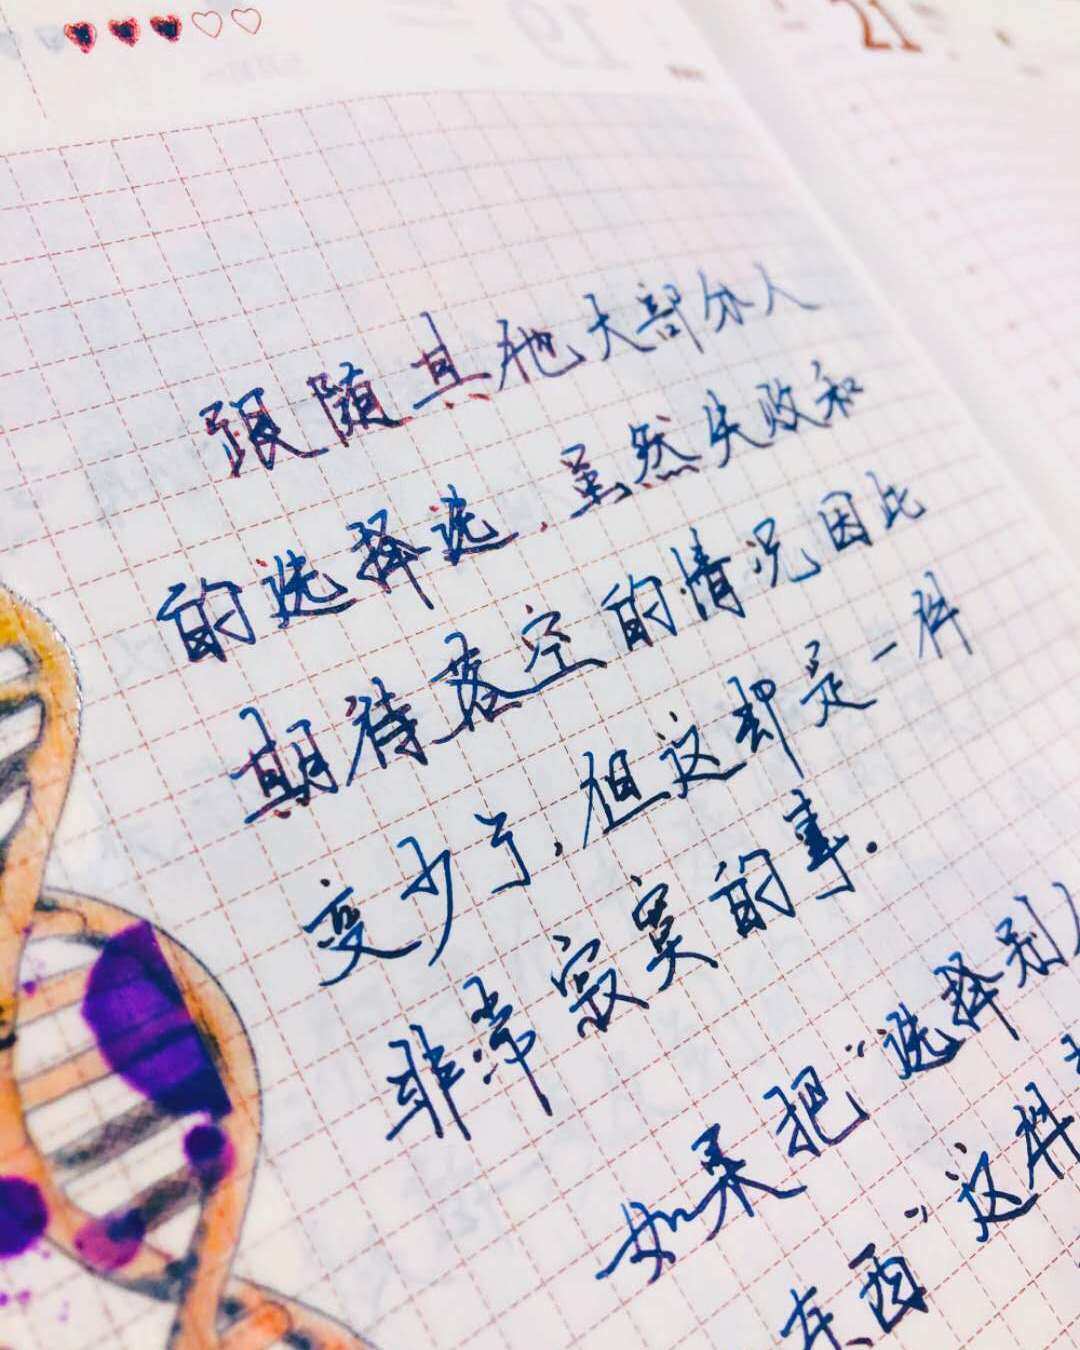 21
跟随其他大部分人
的选择选，虽然失败和
期待落空的情况因此
变少了，但这却是一件
非常寂寞的事．
如果把“选择别人
东西”这件